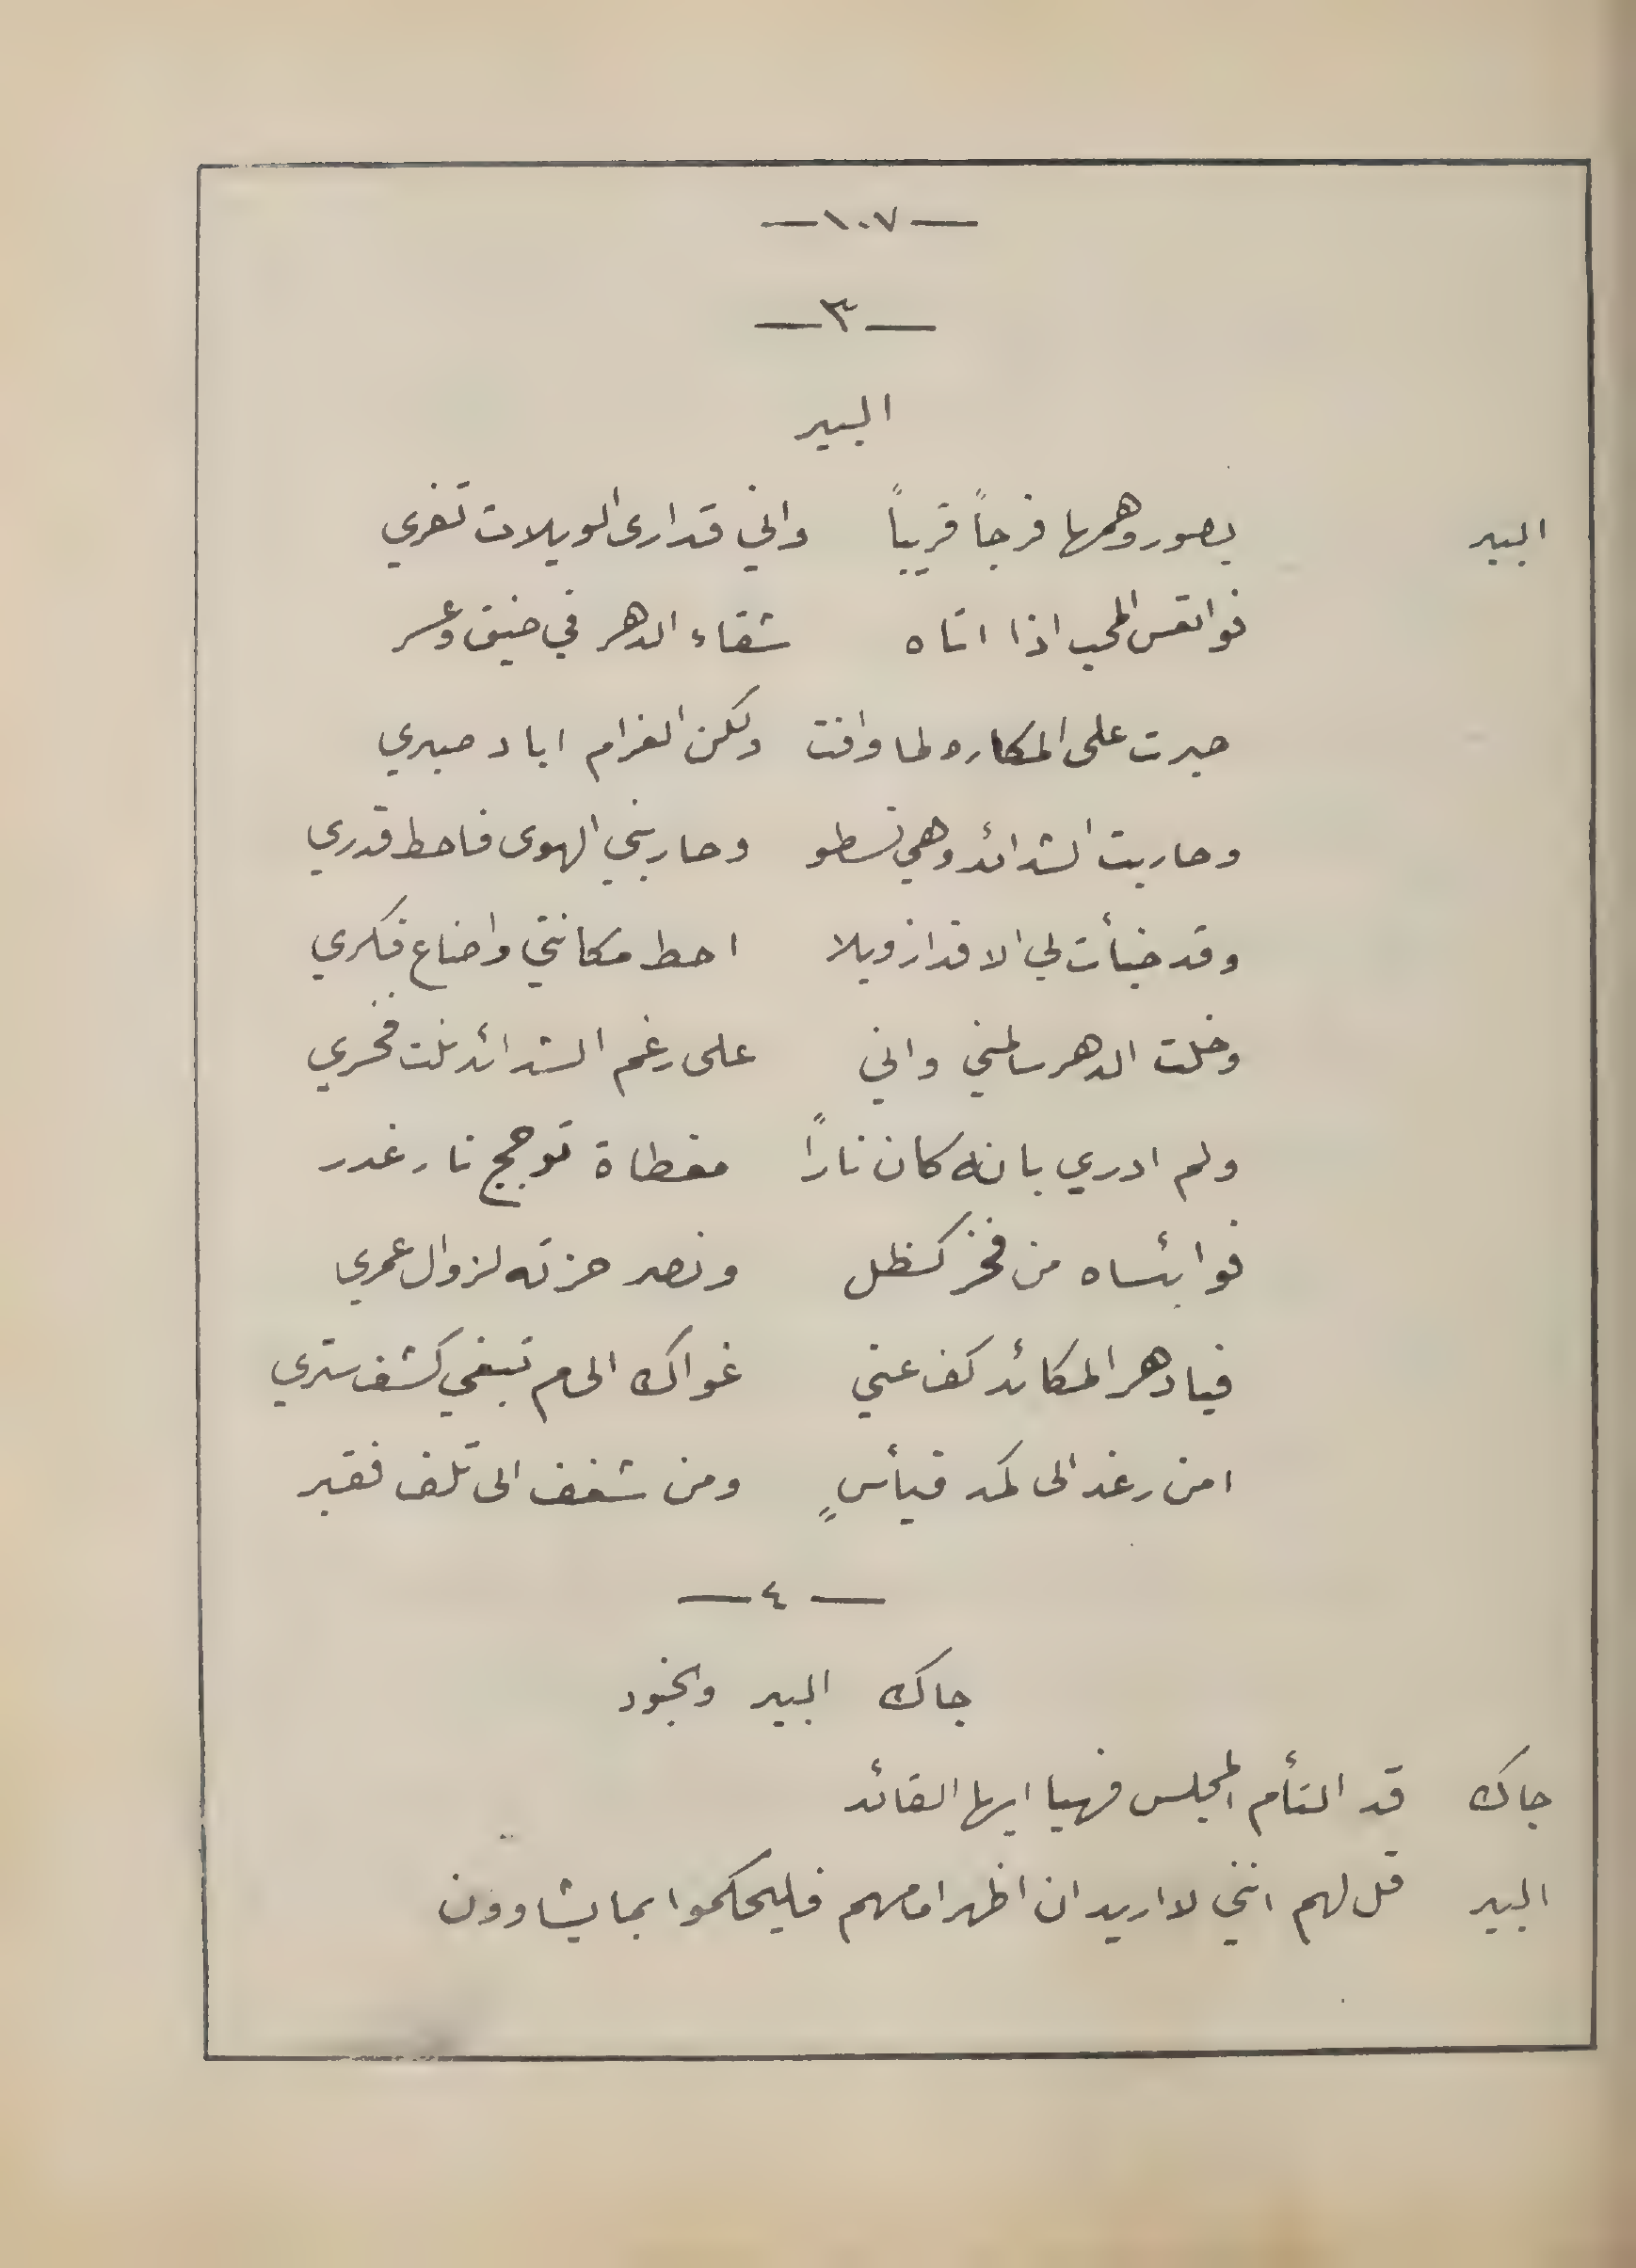 —١٠٧—
—٣—
البير
البير يصور وهمها فرجاً قريباً واني قد ارى الويلات تغري
فواتعس المحب اذا اتاه شقاء الدهر في ضيق وعسر
صبرت على المكاره لما وافت ولكن الغرام اباد صبري
وحاربت الشدائد وهي تسطو وحاربني الهوى فاحط قدري
وقد خبأت لي الاقدار ويلا احط مكانتي واضاع فكري
وخلت الدهر سالمني واني على رغم الشدائد نلت فخري
ولم ادري بانه كان ناراً مغطاة توجج نار غدر
فوابئساه من فخر كظل ونصر حزته لزوال عمري
فيا دهر المكائد كف عني غواك الى م تبغي كشف ستري
امن رغد الى كمد فيأسٍ ومن شغف الى تلف فقبر
— ٤ —
جاك البير والجنود
جاك قد التأم المجلس فهيا ايها القائد
البير قل لهم انني لا اريد ان اظهر امامهم فليحكموا بما يشاوون